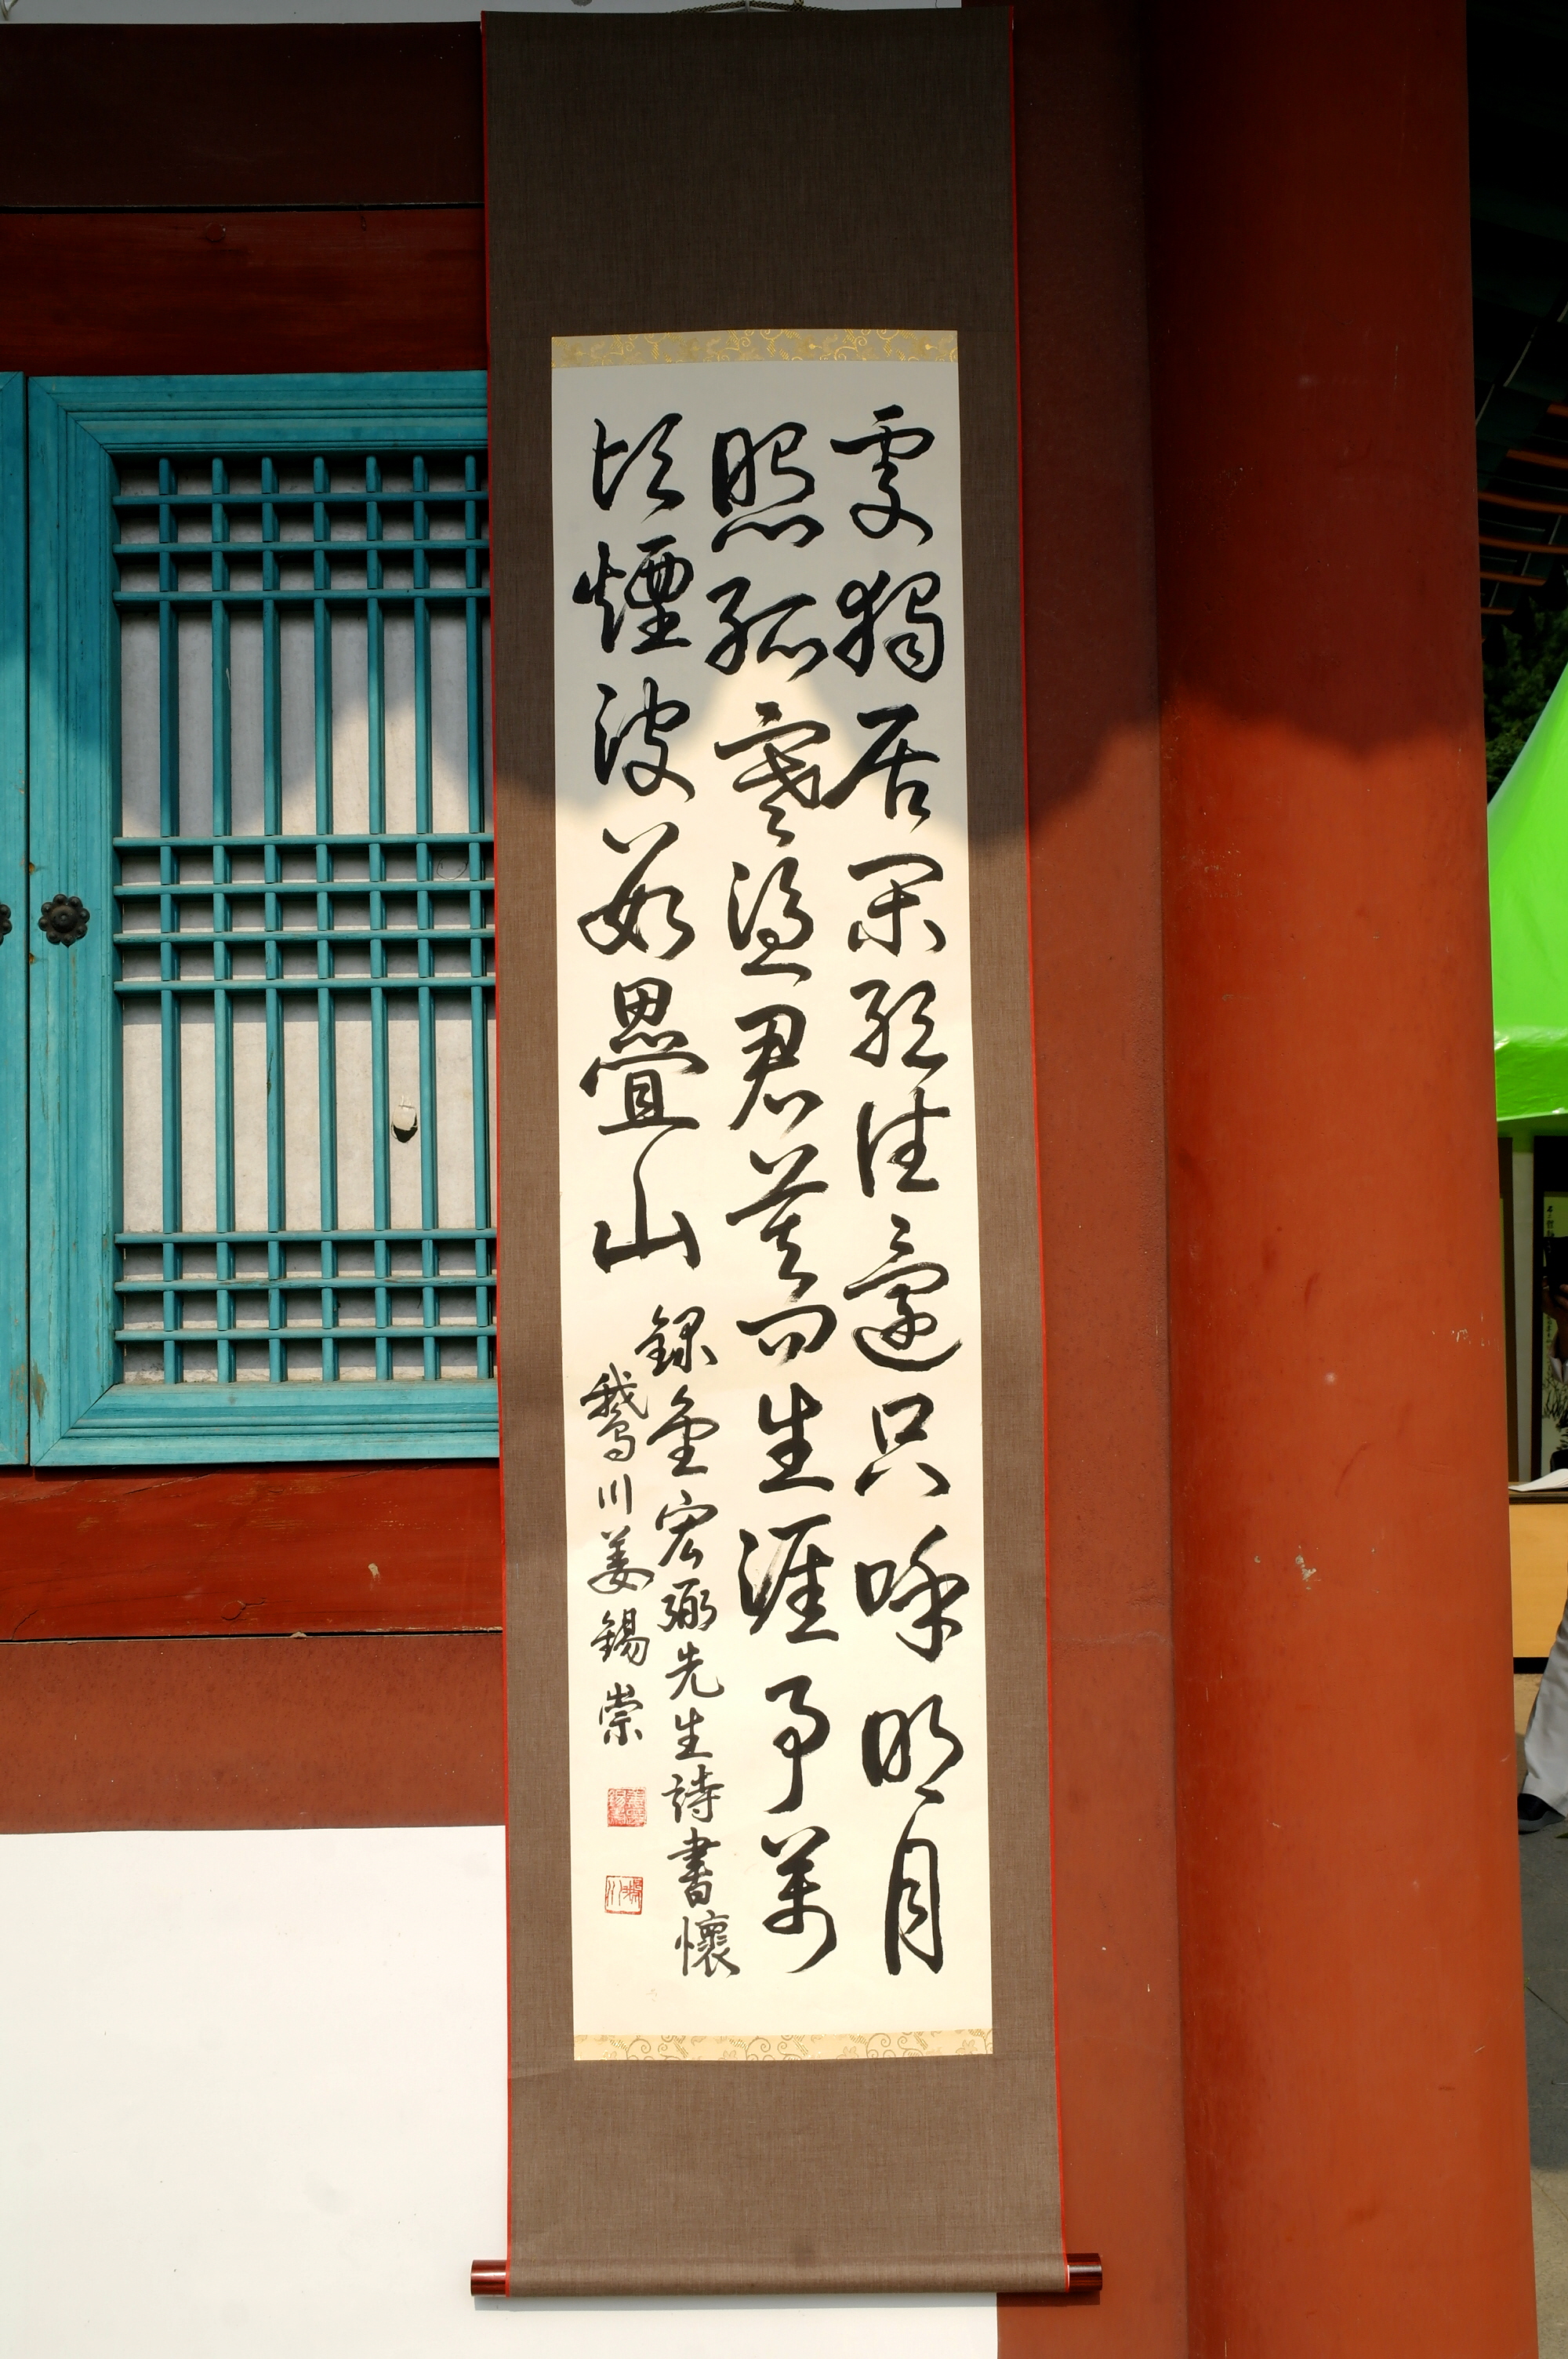 處獨居閒絶往還只呼明月
照孤寒憑君莫問生涯事萬
頃煙波數疊山
錄金宏弼先生詩書懷
鵝川姜錫崇